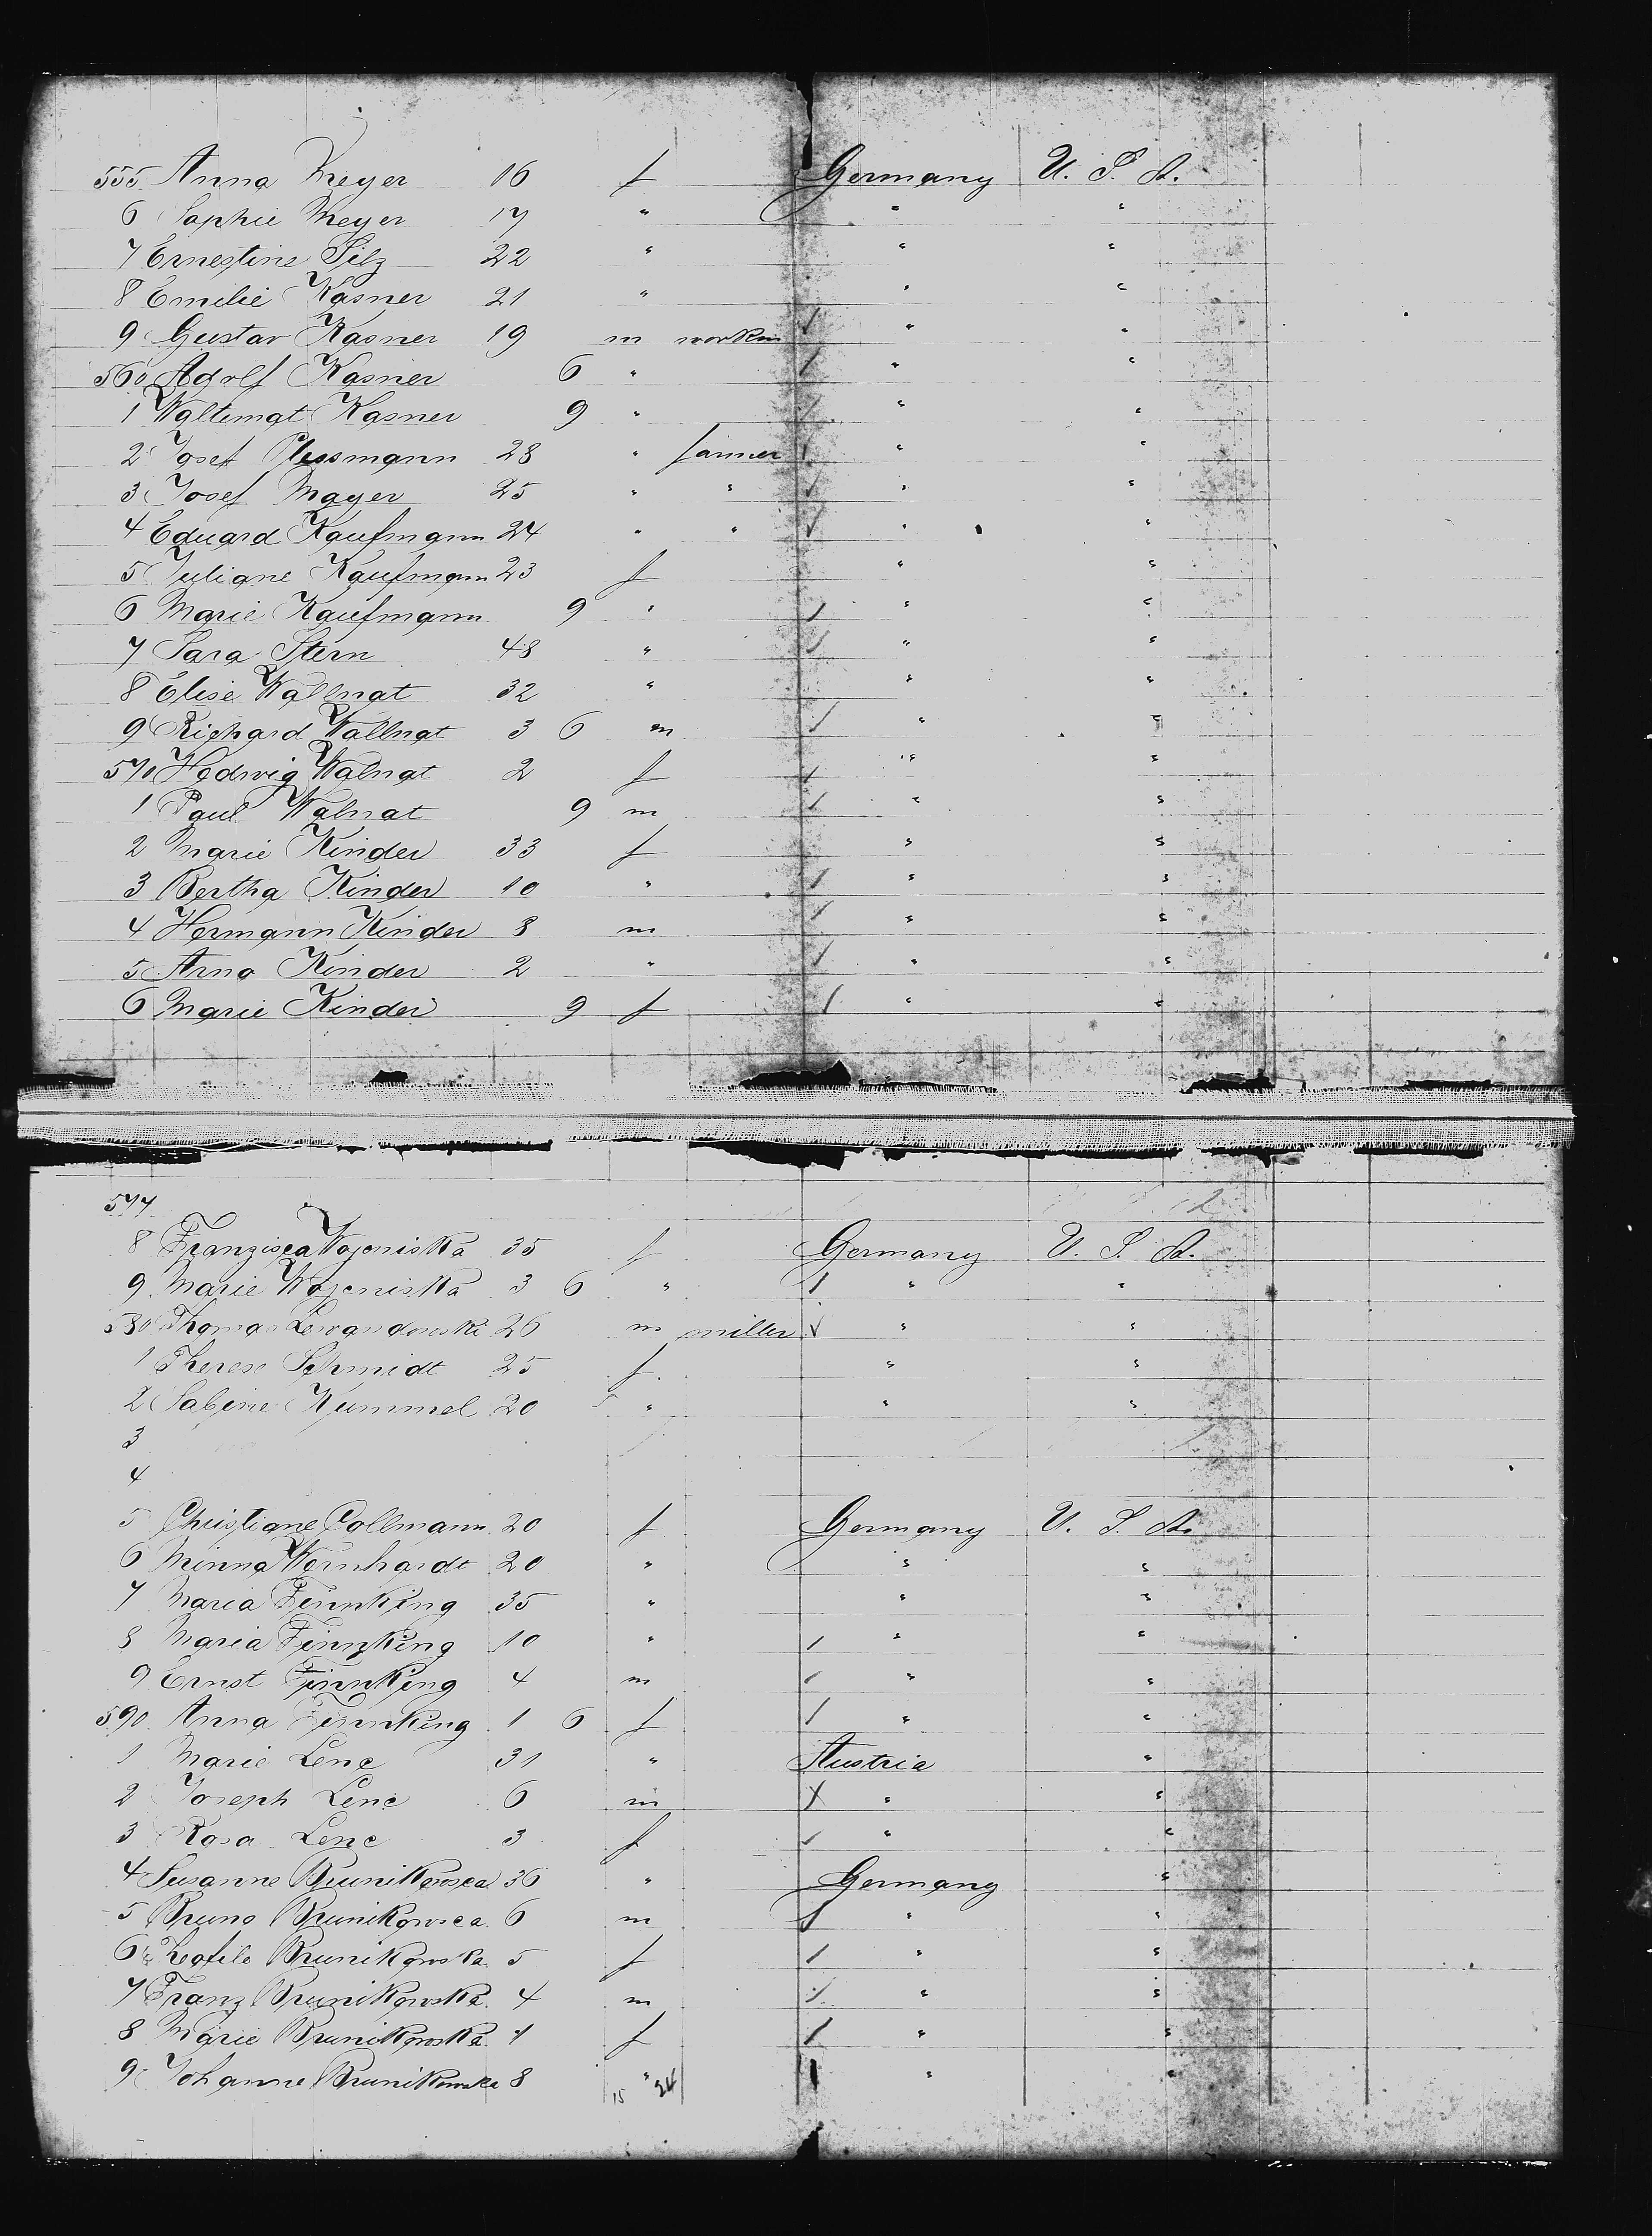 555 Anna Meyer 16 f Germany U. S. A.
6 Sophie Meyer 17 " " "
7 Ernestine Silz 22 " " "
8 Emilie Kasner 21 " " "
9 Gustav Kasner 19 m workm " "
560 Adolf Kasner 6 " " "
1 Waltemat Kasner 9 " " "
2 Josef Plessmann 28 " farmer " "
3 Josef Mayer 25 " " " "
4 Eduard Kaufmann 24 " " " "
5 Juliane Kaufmann 23 f " "
6 Marie Kaufmann 9 " " "
7 Sara Stern 48 " " "
8 Elise Wallnat 32 " " "
9 Richard Wallnat 3 6 m " "
570 Hedwig Walnat 2 f " "
1 Paul Walnat 9 m " "
2 Marie Kinder 33 f " "
3 Bertha Kinder 10 " " "
4 Hermann Kinder 8 m " "
5 Arno Kinder 2 " " "
6 Marie Kinder 9 f " "
577
8 Franzisca Wojeniska 35 f Germany U. S. A.
9 Marie Wojeniska 3 6 " " "
580 Thomas Lewandowski 26 m miller " "
1 Therese Schmidt 25 f " "
2 Sabine Kummel 20 " " "
3
4
5 Christiane Collmann 20 f Germany U. S. A.
6 Minna Wernhardt 20 " " "
7 Maria Finnking 35 " " "
8 Maria Finnking 10 " " "
9 Ernst Finnking 4 m " "
590 Anna Finnking 1 6 f " "
1 Marie Lenc 31 " Austria "
2 Joseph Lenc 6 m " "
3 Rosa Lenc 3 f " "
4 Susanne Brunikowsca 36 " Germany "
5 Bruno Brunikowsca 6 m " "
6 Brunikowska 5 f " "
7 Franz Brunikowska 4 m " "
8 Marie Brunikowska 1 f " "
9 Johanne Brunikowska 8 " " "
15 24